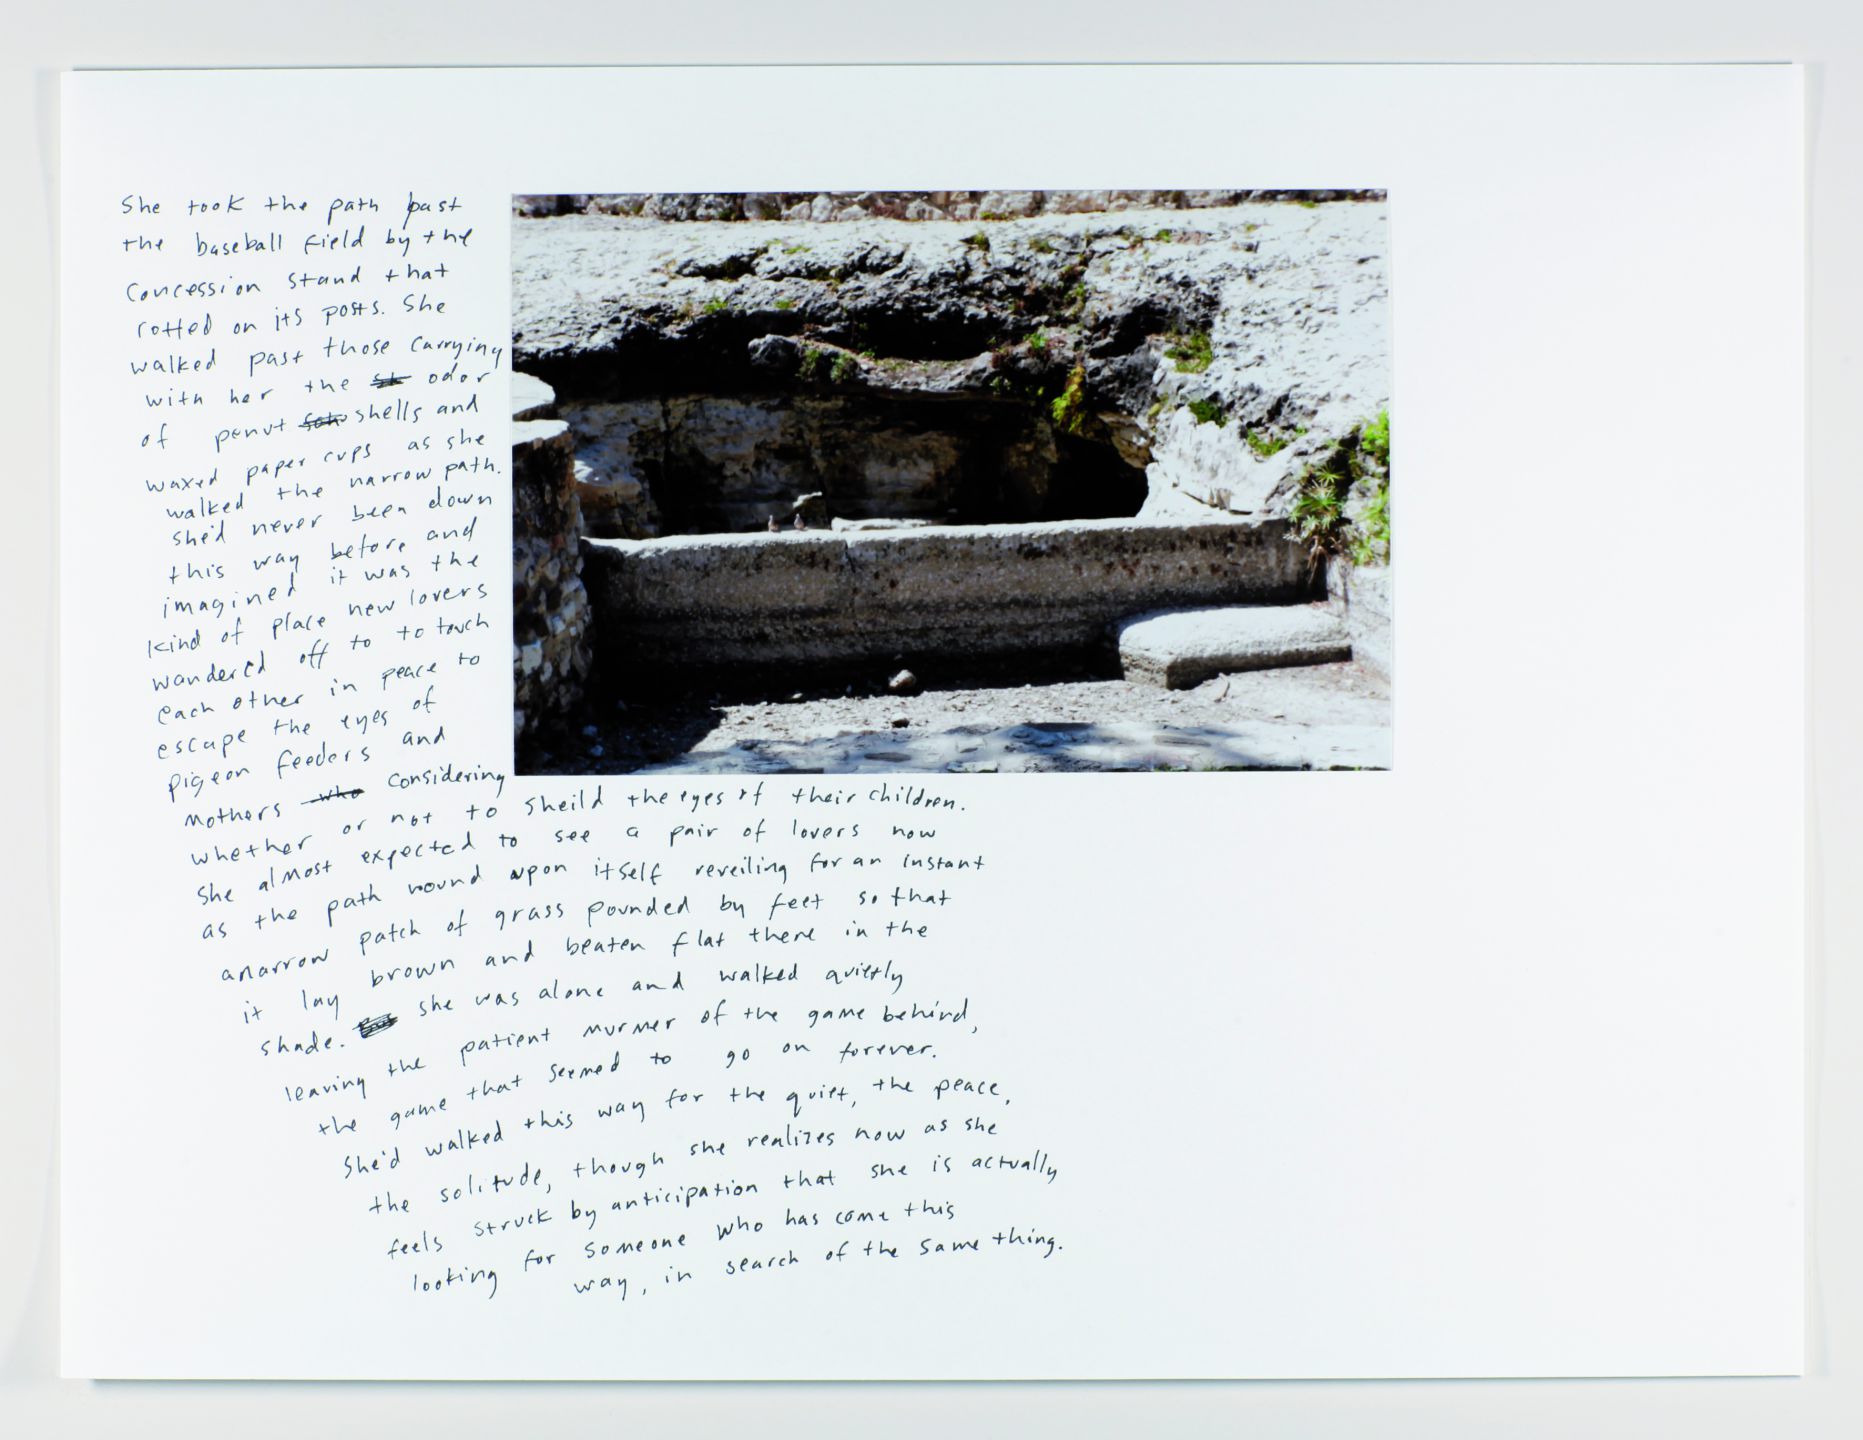 She took the path past
the baseball field by the
concession stand that
rotted on its posts. She
walked past those carrying
with her the odor
of penut shells and
waxed paper cups as she
walked the narrow path.
she'd never been down
this way before and
imagined it was the
kind of place new lovers
wandered off to to touch
each other in peace to
escape the eyes of
pigeon feeders and
mothers who considering
whether or not to sheild the eyes of their children.
She almost expected to see a pair of lovers now
as the path wound upon itself reveiling for an instant
a narrow patch of grass pounded by feet so that
it lay brown and beaten flat there in the
shade. she was alone and walked quietly
leaving the patient murmer of the game behind,
the game that seemed to go on forever.
She'd walked this way for the quiet, the peace,
the solitude, though she realizes now as she
feels struck by anticipation that she is actually
looking for someone who has come this
way, in search of the same thing.